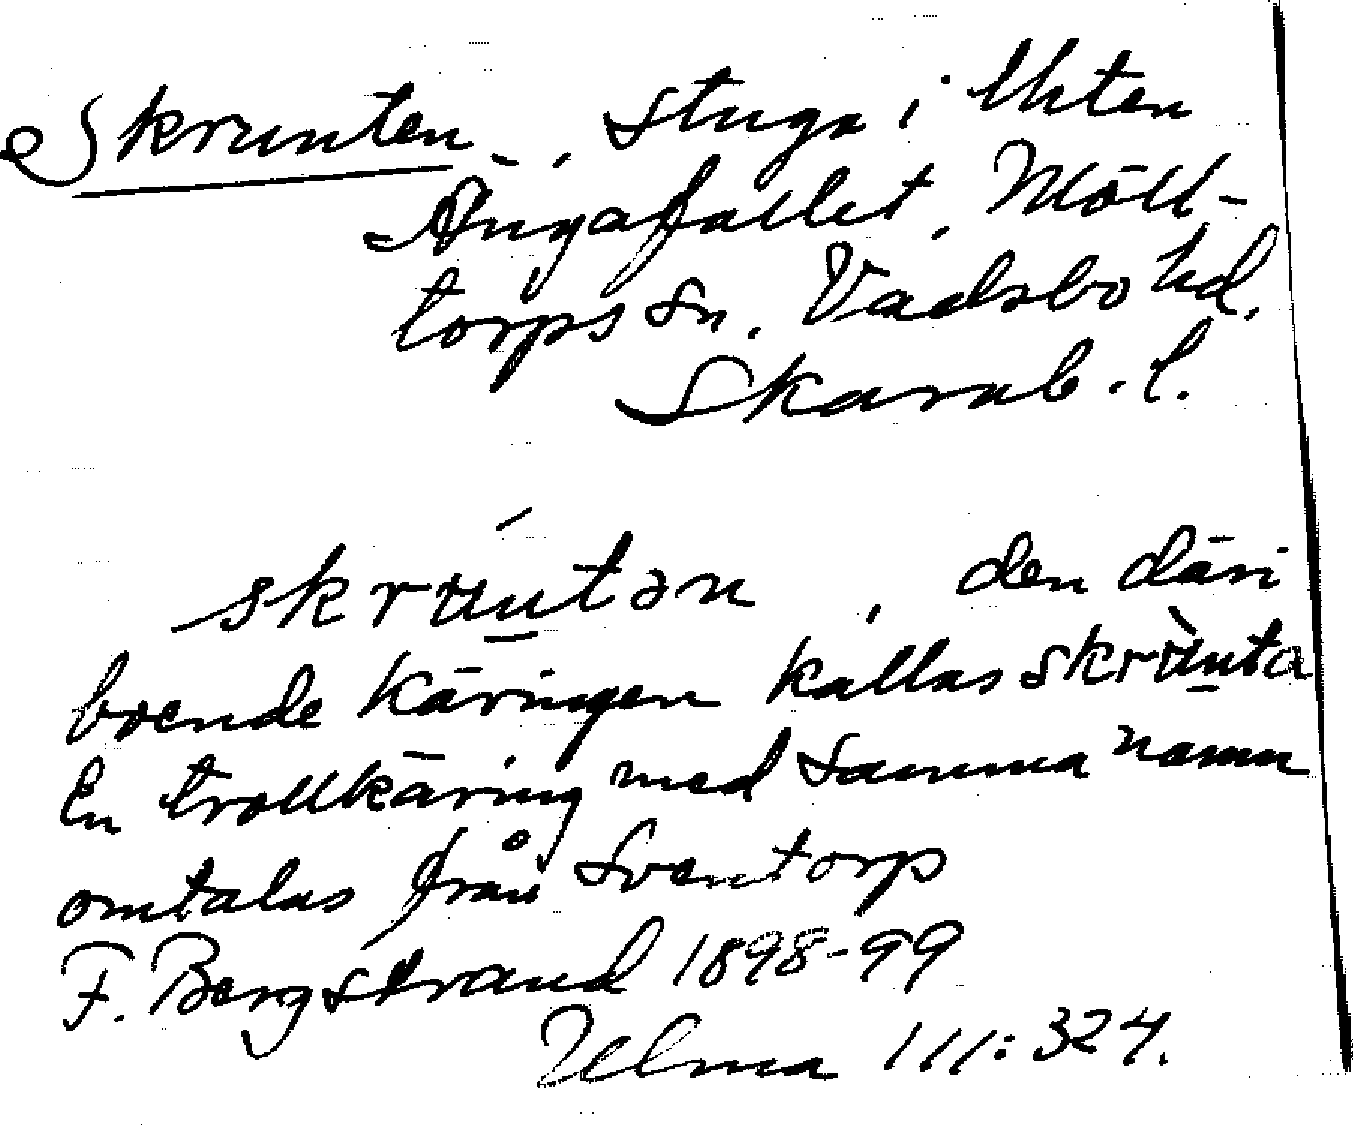 Skrunten, stuga i Uten
Ängafallet, Möll-
torps sn. Vadsbo hd.
Skarab. l.
skruntən, den däri
boende käringen kallas skrunta
En trollkäring med samma namn
omtalas från Sventorp
F. Bergstrand 1898-99
Ulma 111:324.